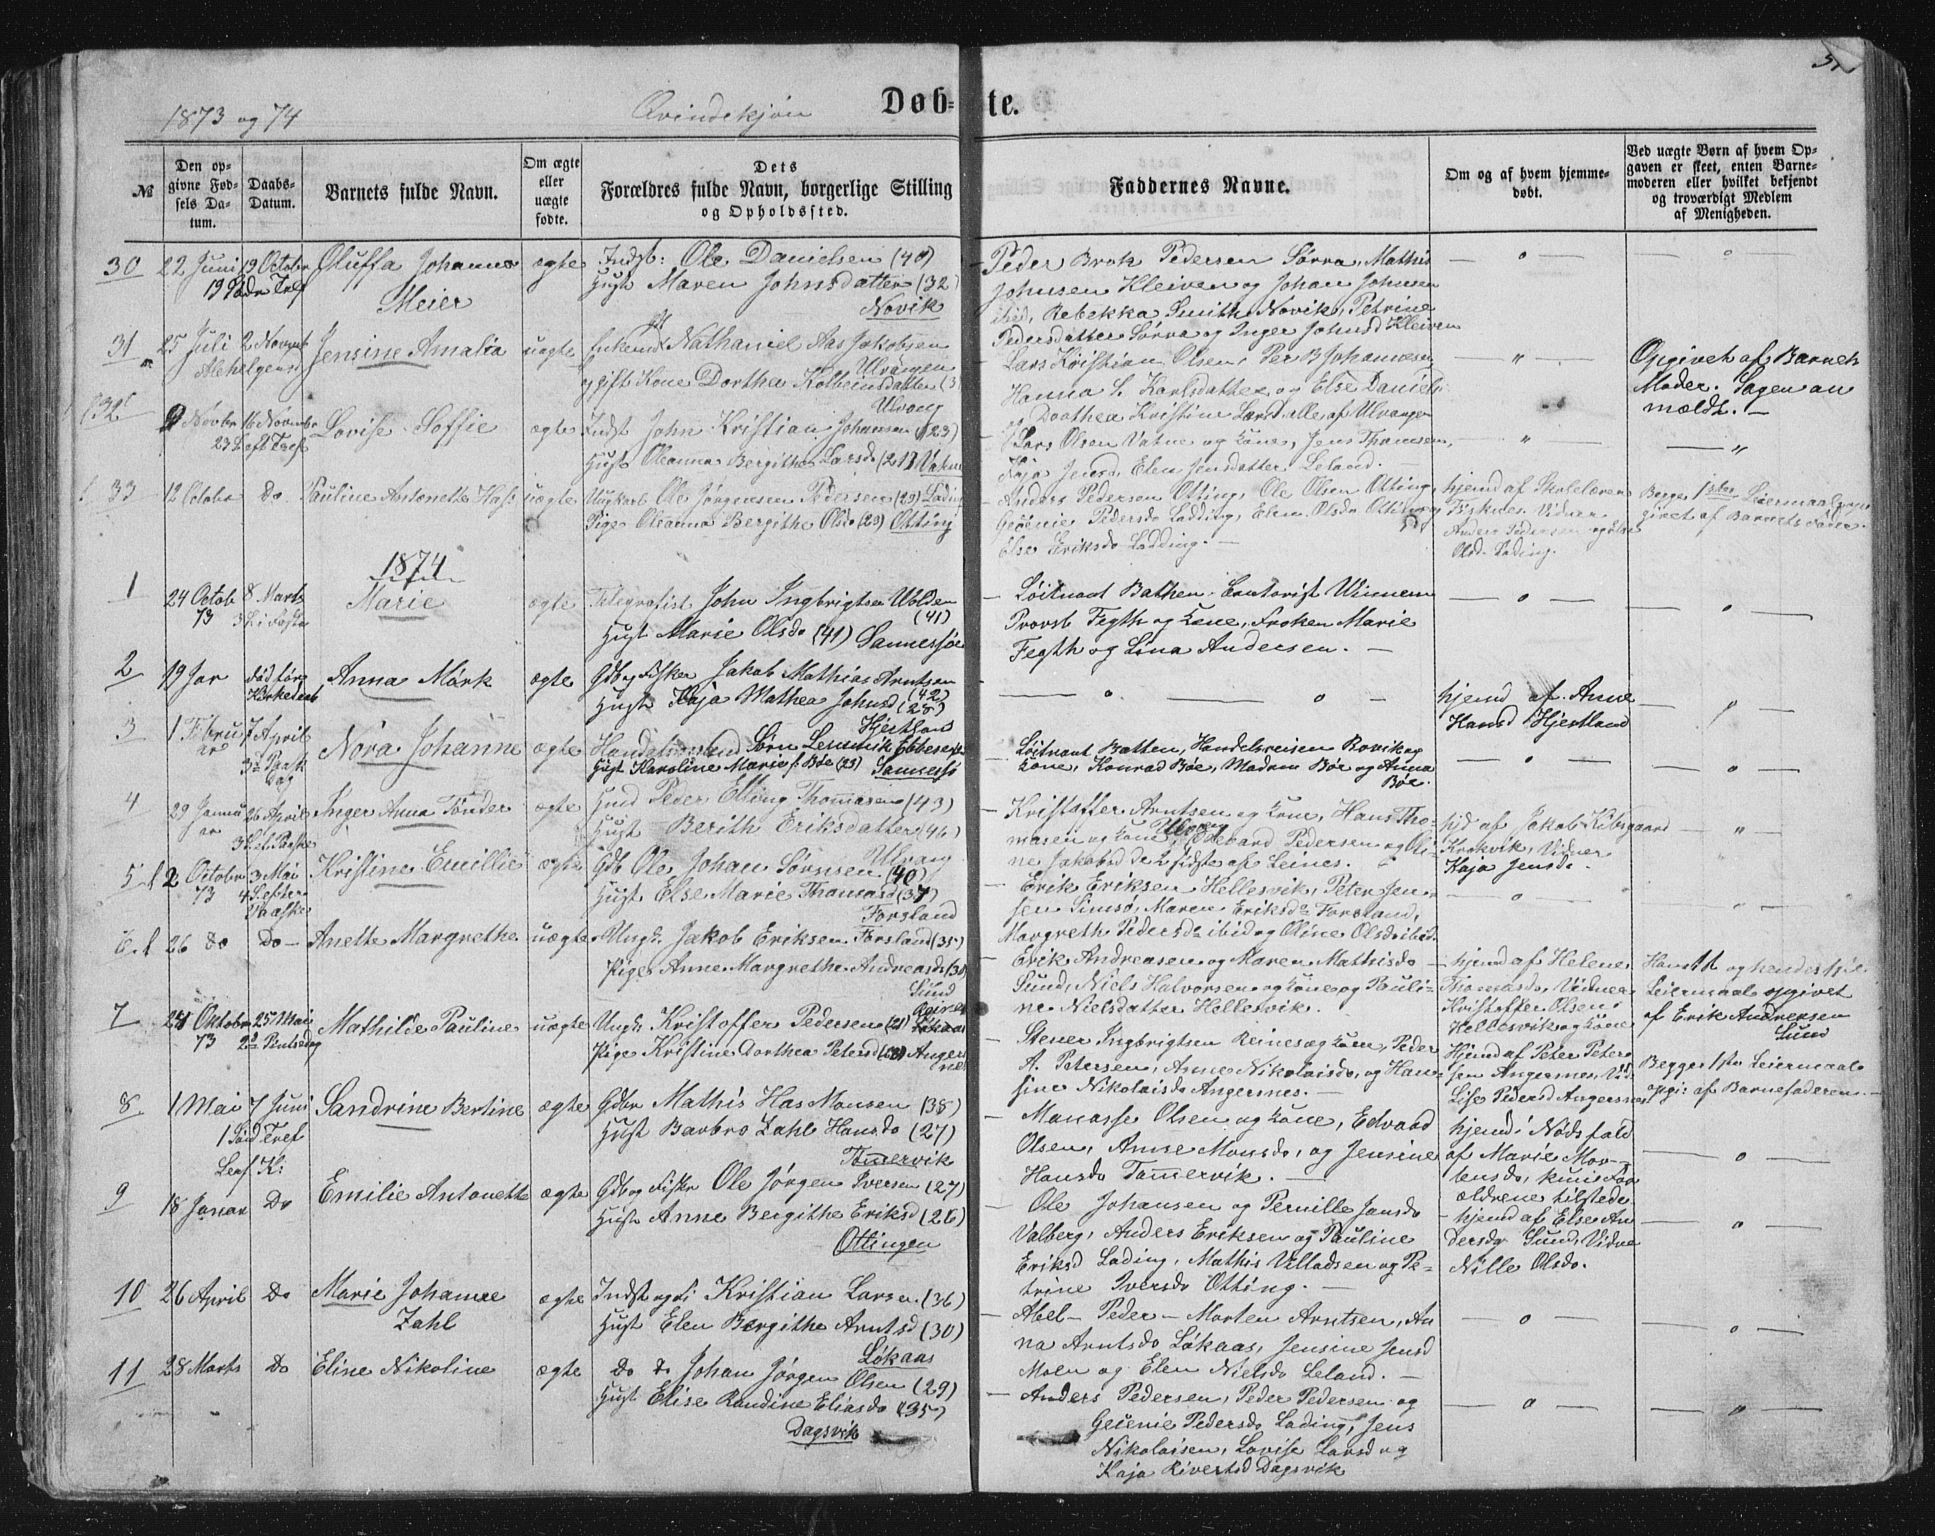 1873 og 74
Qvindekjøn
Døbte.
№
Den opgivne Fødsels Datum.
Daabs-Datum.
Barnets fulde Navn.
Om ægte eller uægte fødte.
Dets Forældres fulde Navn, borgerlige Stilling og Opholdssted.
Faddernes Navne.
Om og af hvem hjemmedøbt.
Ved uægte Børn af hvem Opgaven er skeet, enten Barnemoderen eller hvilket bekjendt og troværdigt Medlem af Menigheden.
30 22 Juni 19 Octobr Oluffa Johanna Meier ægte Indst: Ole Danielsen (40)
Hust Maren Johnsdatter (32) Novik
Peder Brok Pedersen Sørra, Mathis
Johnsen Kleiven og Johan Johnsen
ibid, Rebekka Smith Novik, Petrine
Pedersdatter Sørra og Inger Johnsd Kleiven
31 25 Juli 2 Novembr Jensine Amalia uægte Enkemd Nathaniel Aas Jakobsen Ulvangen
gift Kone Dorthea Kolbeinsdatter Ulvang
Lars Kristian Olsen, Per B Johannesen
Hanna L Karlsdatter og Else Daniels
Dorthea Kristine Larsd alle af Ulvangen
Opgivet af Barnets
Moder. Sagen an
meldt. —
32 9 Novbr 16 Novembr Lovise Soffie ægte Indst John Kristian Johansen (23)
Hust Oleanna Bergithe Larsd (21) Vatne
Lars Olsen Vatne og Kone, Jens Thomsen,
Kaja Jensd, Elen Jensdatter Leland. —
33 12 Octobr Do Pauline Antonette uægte Ungkarl Ole Jørgensen Pedersen (29) Lading
Pige Oleanna Bergithe Olsd (23) Otting
Anders Pedersen Otting, Ole Olsen Otting,
Geenie Pedersd Ladding, Elen Olsd Otting
Else Eriksd Ladding. —
hjemd af Skolelærer
Fisknes. Vidner
Anders Pedersen og
Olsd. Lading.
Begges 1ste Leiermaal, opgivet af Barnets Fader.
1874
1 24 Octob 73 8 Marts 3 S. i Faste Marie ægte Telegrafist John Ingbrigtsen Volden (41)
Hust Marie Olsd (41) Sannessjøe
Løitnant Bathen, Contorist
Provst Fegth og Kone, Frøken Marie
Fegth og Lina Andersen. —
2 19 Jar Anna Mørk ægte Gdb og Fisker Jakob Mathias Arntsen (42)
Hust Kaja Mathea Johnsd (28) Hjertland
hjemd af Anne
Hansd Hjertland
3 1 Februar 7 April Nora Johanne ægte Handelsmand Sørn Lemmik Ebbesen
Hust Karoline Marie f. Bøe (33) Sannessjø
Løitnant Batten, Handelsreisen Rovik og
Kone, Konrad Bøe, Madam Bøe og Anna
Bøe.
4 29 Januar 26 April Inger Anna Tønder ægte Hmd Peder Otting Thommasen (43)
Hust Berith Eriksdatter (46) Ulvang
Kristoffer Arntsen og Kone, Hans Thomasen og Kone Ulvangen, Hevard Pedersen og Oline Jakobsd de 2 sidste af Leines.
hjd af Jakob Kibsgaard
Krokvik, Vidner
Kaja Jensd.
5 2 Octobr 73 3 Mai Kristine Emillie ægte Gdb Ole Johan Sørnsen (40)
Hust Else Marie Thomasd (37) Forsland
Erik Eriksen Hellesvik, Peter Jensen Simsø, Maren Eriksd Forsland,
Margreth Pedersd ibid og Oline Olsd ibid.
6 26 Do Do Anette Margrethe uægte Ungk. Jakob Eriksen Forsland (35)
Pige Anne Margrethe Andreasd (30) Sund
Erik Andreasen og Maren Mathisd
Sund, Niels Halvorsen og Kone og Pauline Nielsdatter Hellesvik.
hjemd af Helene
Thomasd, Vidner
Kristoffer Olsen
Hellesvik og Kone
Leiermaal opgivet
af Erik Andreasen
Sund
7 24 Oktobr 73 25 Mai 2d Pintsedag Mathilde Pauline uægte Ungk. Kristoffer Pedersen (21) Løkaas
Pige Kristine Dorthea Petersd Angersnes
Stener Ingbrigtsen Reines og Kone, Peder
A. Petersen, Anne Nikolaisd, og Hansine Nikolaisd Angersnes. —
Hjemd af Peter Petersen Angersnes, Vid
Lise Pedersd Angersnes
Begges 1ste Leiermaal
opgi: af Barnefaderen. —
8 1 Mai 7 Juni Sandrine Bertine ægte Gdbr Mathis Has Monsen (38)
Hust Barbro Zahl Hansd (27) Tømmervik
Manasse Olsen og Kone, Edvard
Olsen, Anne Monsd, og Jensine
Hansd Tømmervik. —
hjemd i Nødsfald
af Marie Mortensd, kun Forældrene tilstede.
9 18 Januar Do Emilie Antonette ægte Gdb og Fiskr Ole Jørgen Iversen (27)
Hust Anne Bergithe Eriksd (26)
Ottingen
Ole Johansen og Pernille Jansd
Valberg, Anders Eriksen og Pauline
Eriksd Lading, Mathis Villadsen og Petrine Iversd Otting. —
hjemd af Else Andersd Sund, Vidne
Nille Olsd.
10 26 April Do Marie Johanne Zahl ægte Indst og Fi Kristian Larsen (36)
Hust Elen Bergithe Arntsd (30)
Løkaas
Abel — Peder — Morten Arntsen, Anna Arntsd Løkaas, Jensine Jensd
Moen og Elen Nielsd Leland. —
11 28 Marts Do Eline Nikoline ægte Do Do Johan Jørgen Olsen (29)
Hust Elise Randine Eliasd (35)
Dagsvik
Anders Pedersen, Peder Pedersen og
Geienie Pedersd Lading, Jens
Nikolaisen, Lovise Larsd og
Kaja Sivertsd Dagsvik